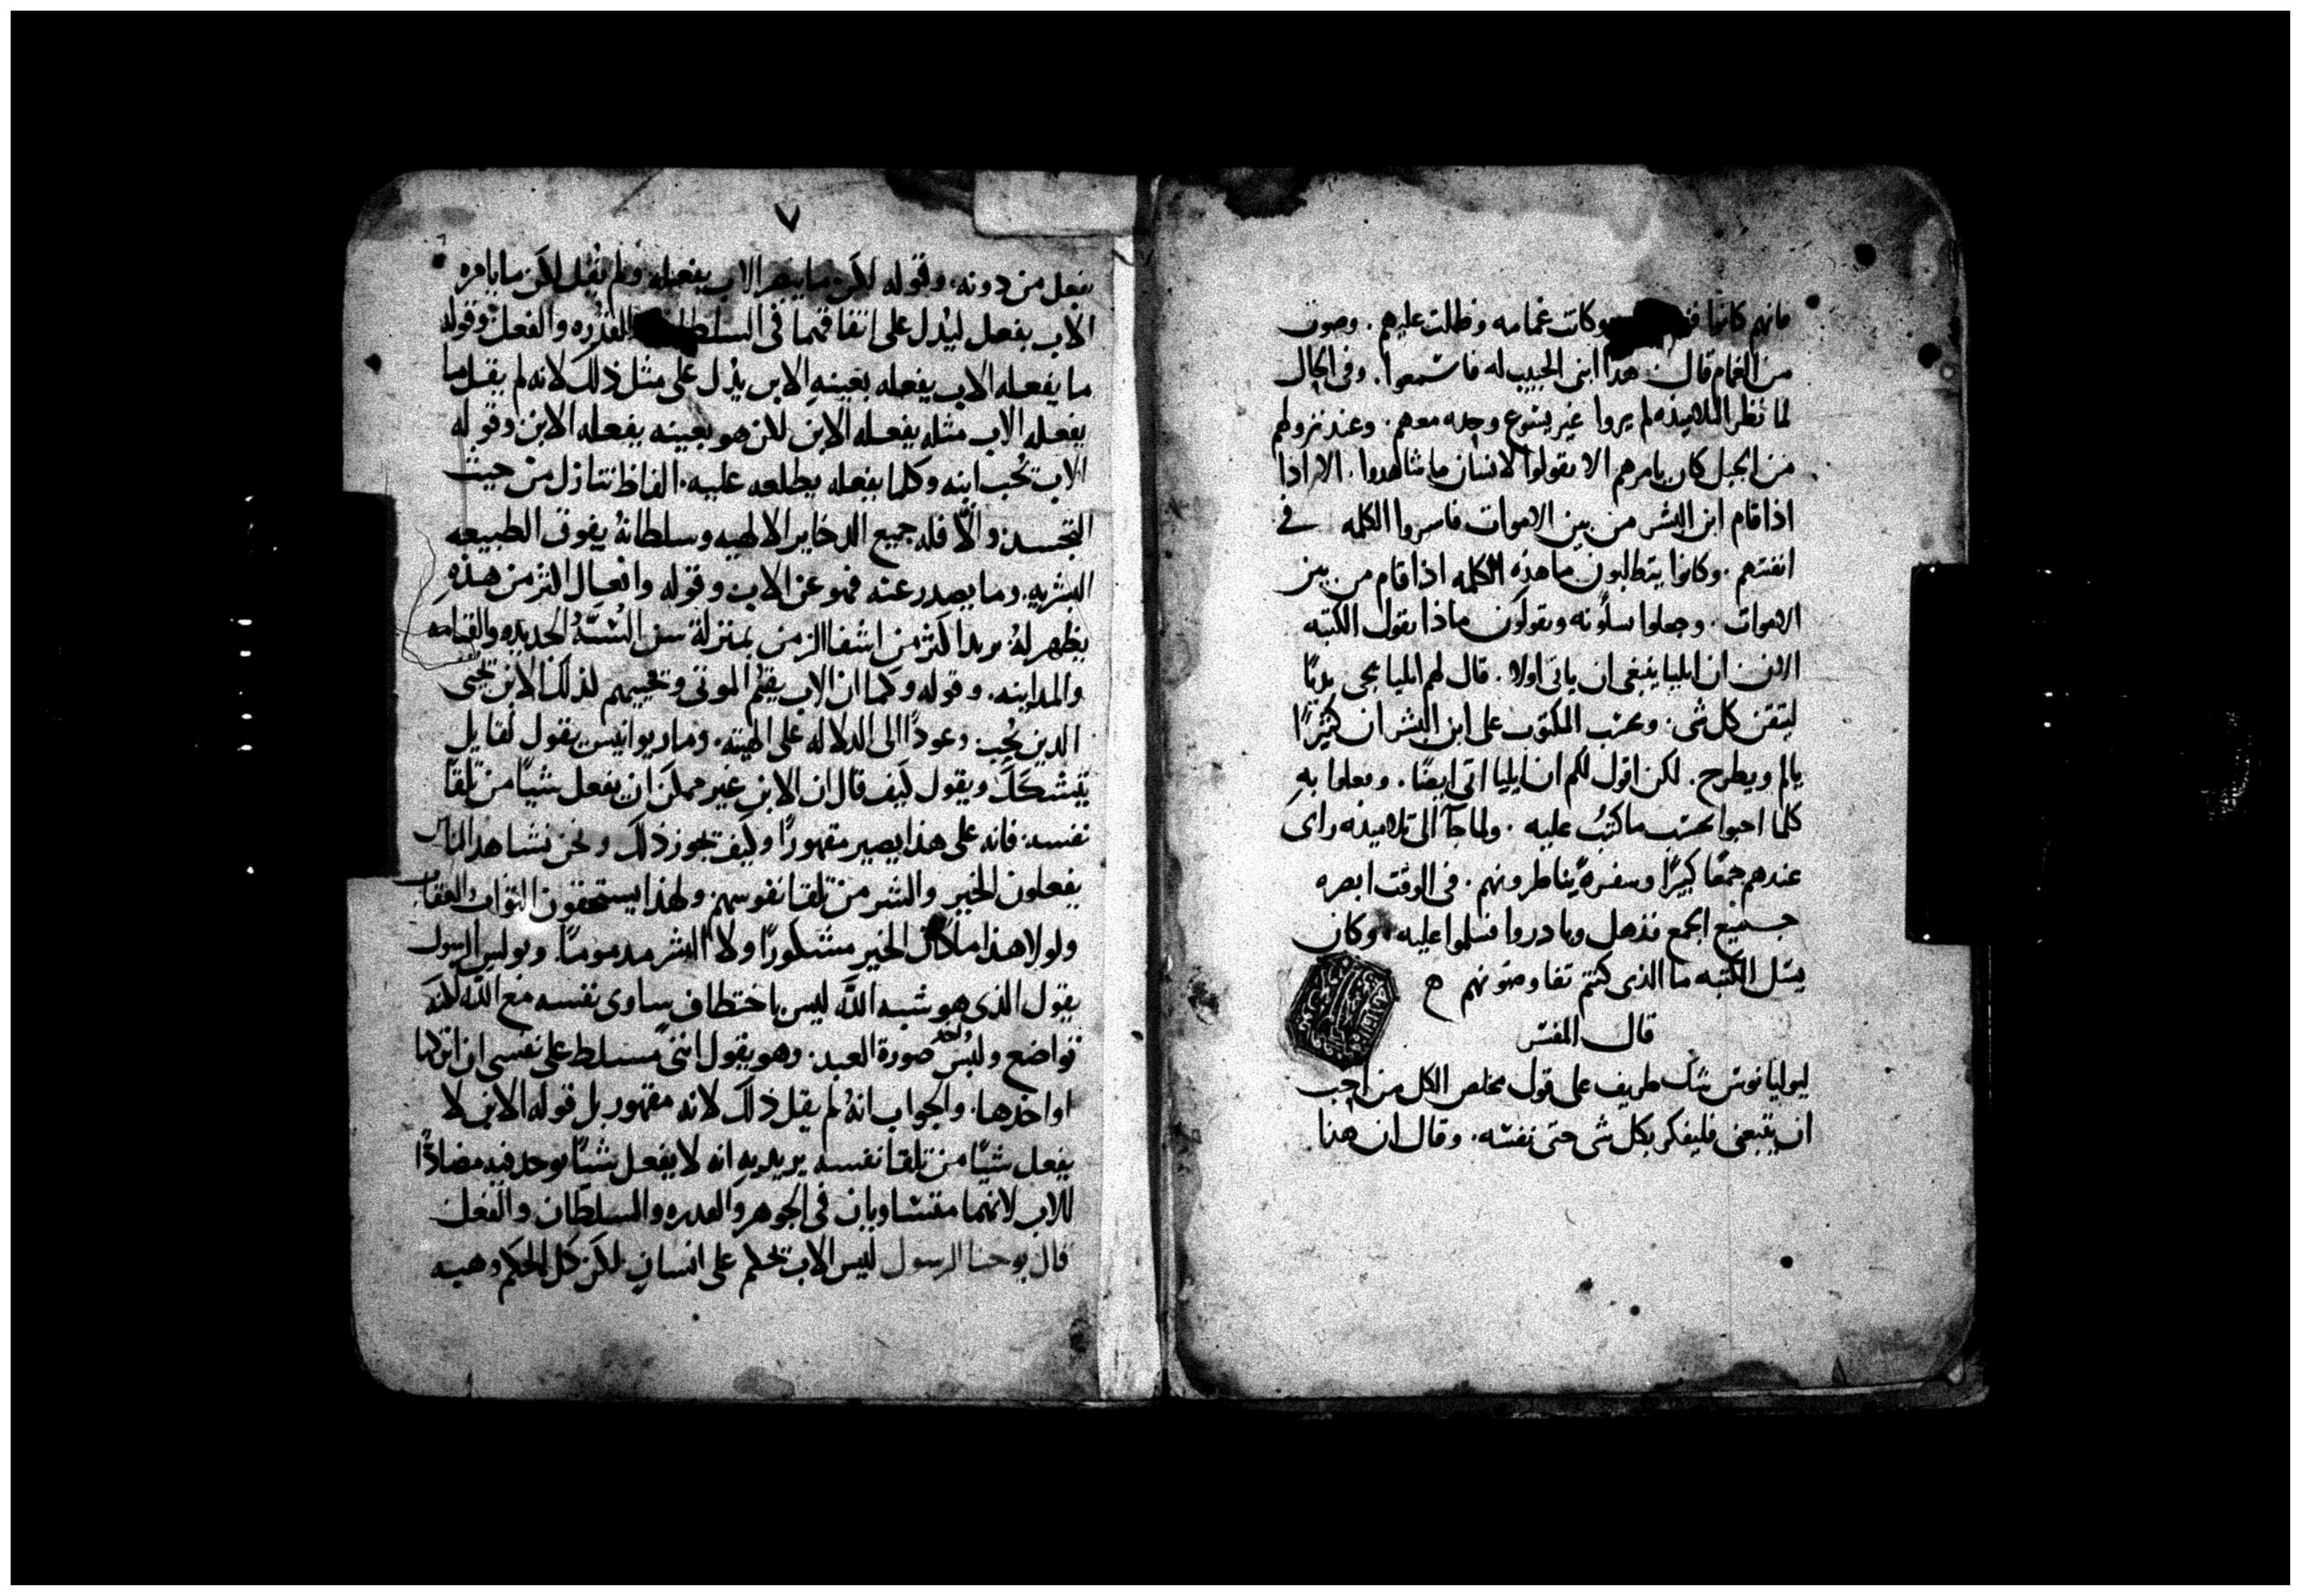 فانهم كانوا وكانت غمامه وظللت عليهم. وصوت
من الغمام قال هدا ابنى الحبيب له فاسمعوا. وفى الحال
لما نظر التلاميذ لم يروا غير يسوع وحده معهم. وعند نزولهم
من الجبل كان يامرهم الا يقولوا لانسان ما شاهدوا. الا اذا
اذا قام ابن البشر من بين الاموات فاسروا الكلمه فى
انفسهم. وكانوا يتطالبون ما هذه الكلمه اذا قام من بين
الاموات. وجعلوا يسلونه ويقولون ماذا يقول الكتبه
الان ان ايليا ينبغى ان ياتى اولا. قال لهم ايليا يجى بديًا
ليتقن كل شى. وبحسب المكتوب على ابن البشر ان كثيرًا
يالم ويطرح. لكن اقول لكم ان ايليا اتى ايضًا. وفعلوا به
كلما احبوا بحسب ما كتب عليه. ولما جآ الى تلاميذه راى
عندهم جمعًا كبيرًا وسفرةً يناظرونهم. فى الوقت ابصره
جميع الجمع فذهل وبادروا فسلموا عليه. وكان
يسل الكتبه ما الذى كنتم تفاوضونهم ه
قال المفسر
ليوليانوس شك طريف على قول مخلص الكل من احب
ان يتبعنى فليفكر بكل شى حتى نفسه. وقال ان هنا
٧
يفعل من دونه. وقوله لكن ما يبصر الاب يفعله ولم يقل لكن ما يامره
الاب يفعل ليدل على اتفاقهما فى القدره والفعل وقوله
ما يفعله الاب يفعله بعينه الابن يدل على مثل ذلك لانه لم يقل ما
يفعله الاب مثله يفعله الابن لكن هو بعينه يفعله الابن وقوله
الاب يحب ابنه وكلما يفعله يطلعه عليه. الفاظ تنازل من حيث
التجسد والّا فله جميع الدخاير الالهيه وسلطانهُ يفوق الطبيعه
البشريه. وما يصدر عنه فهو عن الاب وقوله وافعال اكثر من هذه
يظهر لهُ يريد اكثر من اشفا الزمن بمنزلة سنن السُنّةُ الجديده والقيامه
والمداينه. وقوله وكما ان الاب يقيم الموتى ويحييهم لذلك الابن يحيى
الدين يُحب. وعودًا الى الدلاله على الهيته. وماريوانيس يقول لقايل
يتشكك ويقول كيف قال ان الابن غير ممكن ان يفعل شيًا من تلقا
نفسه. فانه على هذا يصير مقهورًا وكيف يجوز ذلك ونحن نشاهد الناس
يفعلون الخير والشر من تلقا نفوسهم ولهذا يستحقون الثواب والعقاب
ولولا هذا ما كان الخير مشكورًا ولا الشر مدمومًا. وبولس الرسول
يقول الذى هو شبه اللّه ليس باختطاف ساوى نفسه مع اللّه لانه
تواضع ولبس واخد صورة العبد. وهو يقول اننى مسلط على نفسى ان اتركها
او اخدها. والجواب انهُ لم يقل ذلك لانه مقهور بل قوله الابن لا
يفعل شيًا من تلقا نفسه يريد به انه لا يفعل شيًا يوجد فيه مضادًّا
للاب لانهما متساويان فى الجوهر والقدره والسلطان والفعل
قال يوحنا الرسول ليس الاب يحكم على انسان لكن كل الحكم وهبه